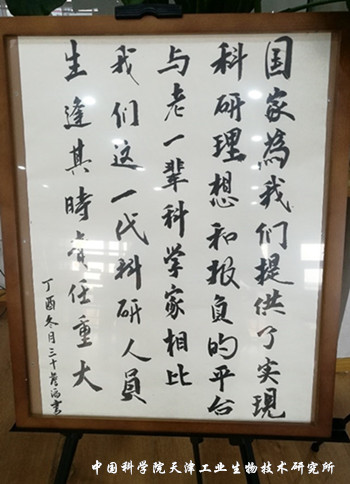 国家為我们提供了实現
科研理想和报负的平台
与老一辈科学家相比
我们这一代科研人員
生逢其時责任重大
丁酉冬月三十
中国科学院天津工业生物技术研究所